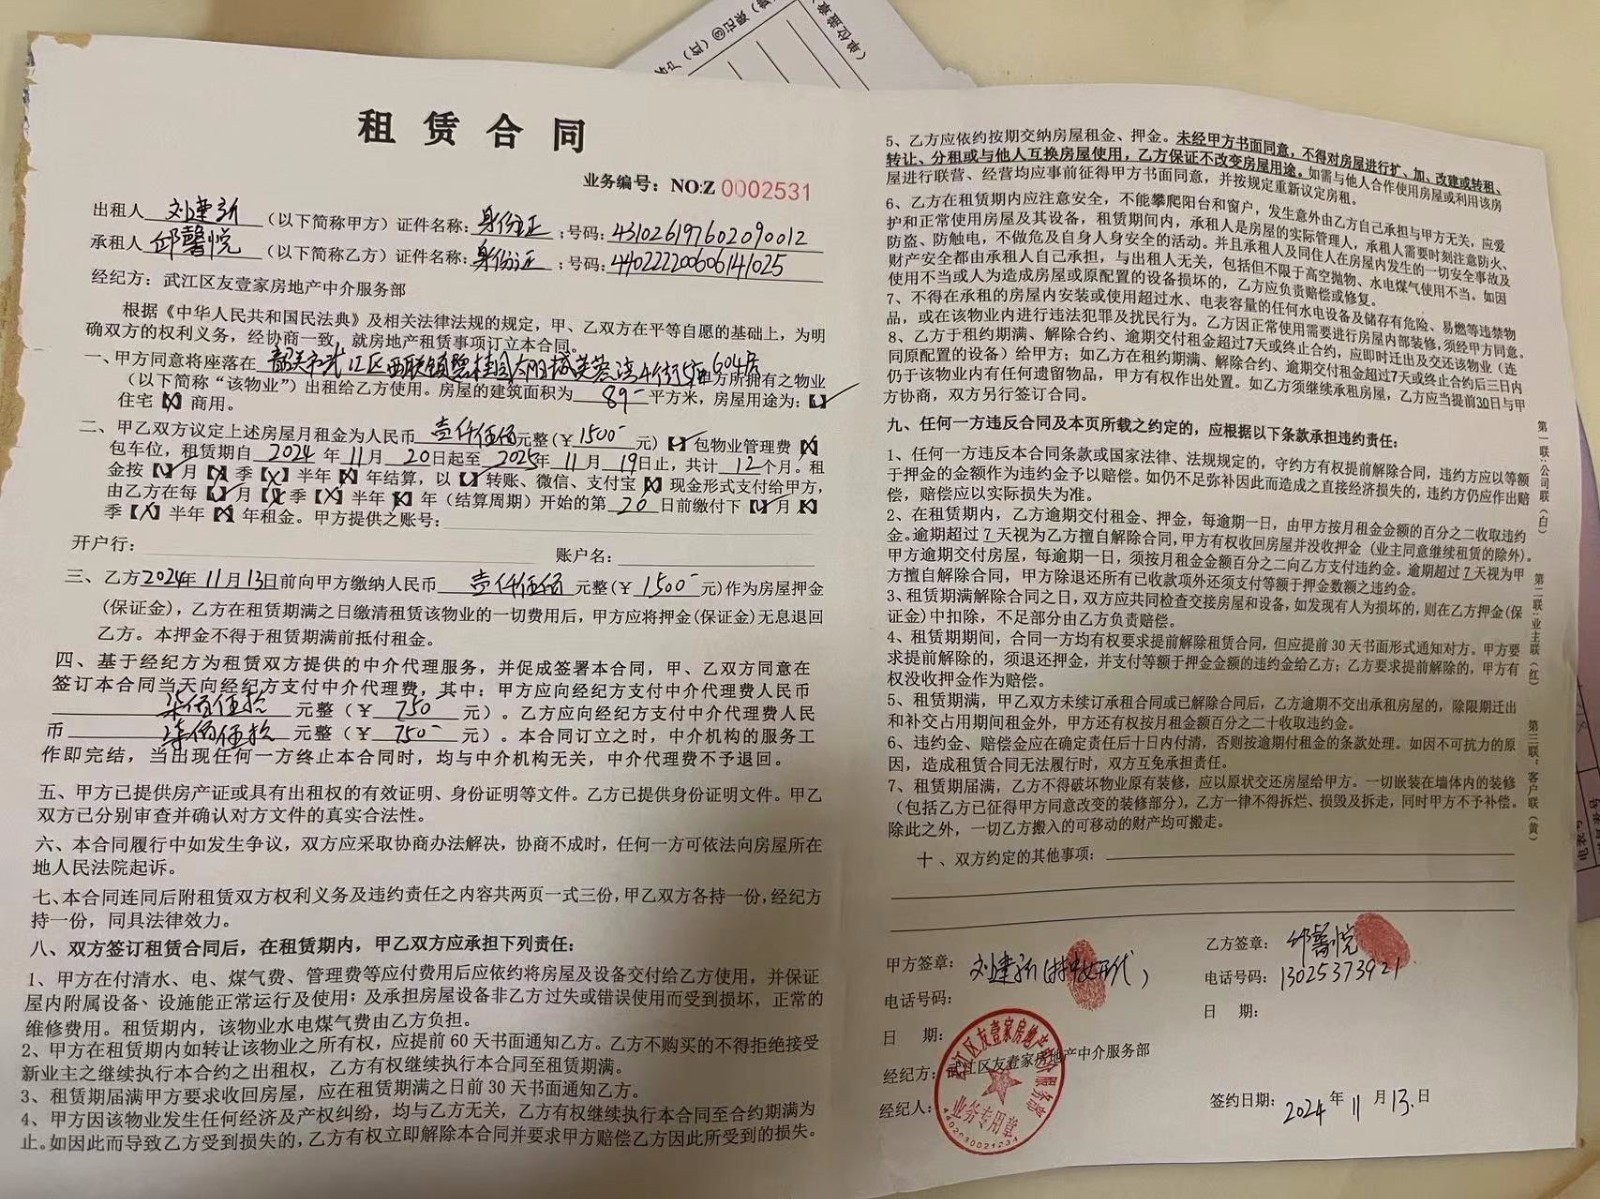 租赁合同
业务编号：NO:Z 0002531
出租人 刘建新（以下简称甲方）证件名称：身份证；号码：431026197602090012
承租人 邱馨悦（以下简称乙方）证件名称：身份证；号码：440222200606141025
经纪方：武江区友壹家房地产中介服务部
根据《中华人民共和国民法典》及相关法律法规的规定，甲、乙双方在平等自愿的基础上，为明
确双方的权利义务，经协商一致，就房地产租赁事项订立本合同。
一、甲方同意将座落在 韶关市武江区西联镇碧桂园太阳城芙蓉湾 604房 方所拥有之物业
（以下简称“该物业”）出租给乙方使用。房屋的建筑面积为 89 平方米，房屋用途为：【✓】
住宅【X】商用。
二、甲乙双方议定上述房屋月租金为人民币 壹仟伍佰 元整（¥ 1500 元）【✓】包物业管理费【X】
包车位，租赁期自 2024 年 11 月 20 日起至 2025 年 11 月 19 日止，共计 12 个月。租
金按【✓】月【X】季【X】半年【X】年结算，以【✓】转账、微信、支付宝【X】现金形式支付给甲方，
由乙方在每【✓】月【X】季【X】半年【X】年（结算周期）开始的第 20 日前缴付下【✓】月【X】
季【X】半年【X】年租金。甲方提供之账号：
开户行： 账户名：
三、乙方2024年11月13日前向甲方缴纳人民币 壹仟伍佰 元整（¥ 1500 元）作为房屋押金
(保证金)，乙方在租赁期满之日缴清租赁该物业的一切费用后，甲方应将押金(保证金)无息退回
乙方。本押金不得于租赁期满前抵付租金。
四、基于经纪方为租赁双方提供的中介代理服务，并促成签署本合同，甲、乙双方同意在
签订本合同当天向经纪方支付中介代理费，其中：甲方应向经纪方支付中介代理费人民币
柒佰伍拾 元整（¥ 750 元）。乙方应向经纪方支付中介代理费人民
币 柒佰伍拾 元整（¥ 750 元）。本合同订立之时，中介机构的服务工
作即完结，当出现任何一方终止本合同时，均与中介机构无关，中介代理费不予退回。
五、甲方已提供房产证或具有出租权的有效证明、身份证明等文件。乙方已提供身份证明文件。甲乙
双方已分别审查并确认对方文件的真实合法性。
六、本合同履行中如发生争议，双方应采取协商办法解决，协商不成时，任何一方可依法向房屋所在
地人民法院起诉。
七、本合同连同后附租赁双方权利义务及违约责任之内容共两页一式三份，甲乙双方各持一份，经纪方
持一份，同具法律效力。
八、双方签订租赁合同后，在租赁期内，甲乙双方应承担下列责任：
1、甲方在付清水、电、煤气费、管理费等应付费用后应依约将房屋及设备交付给乙方使用，并保证
屋内附属设备、设施能正常运行及使用；及承担房屋设备非乙方过失或错误使用而受到损坏，正常的
维修费用。租赁期内，该物业水电煤气费由乙方负担。
2、甲方在租赁期内如转让该物业之所有权，应提前60天书面通知乙方。乙方不购买的不得拒绝接受
新业主之继续执行本合约之出租权，乙方有权继续执行本合同至租赁期满。
3、租赁期届满甲方要求收回房屋，应在租赁期满之日前30天书面通知乙方。
4、甲方因该物业发生任何经济及产权纠纷，均与乙方无关，乙方有权继续执行本合同至合约期满为
止。如因此而导致乙方受到损失的，乙方有权立即解除本合同并要求甲方赔偿乙方因此所受到的损失。
5、乙方应依约按期交纳房屋租金、押金。未经甲方书面同意，不得对房屋进行扩、加、改建或转租、
转让、分租或与他人互换房屋使用，乙方保证不改变房屋用途。如需与他人合作使用房屋或利用该房
屋进行联营、经营均应事前征得甲方书面同意，并按规定重新议定房租。
6、乙方在租赁期内应注意安全，不能攀爬阳台和窗户，发生意外由乙方自己承担与甲方无关，应爱
护和正常使用房屋及其设备，租赁期间内，承租人是房屋的实际管理人，承租人需要时刻注意防火、
防盗、防触电，不做危及自身人身安全的活动。并且承租人及同住人在房屋内发生的一切安全事故及
财产安全都由承租人自己承担，与出租人无关，包括但不限于高空抛物、水电煤气使用不当。如因
使用不当或人为造成房屋或原配置的设备损坏的，乙方应负责赔偿或修复。
7、不得在承租的房屋内安装或使用超过水、电表容量的任何水电设备及储存有危险、易燃等违禁物
品，或在该物业内进行违法犯罪及扰民行为。乙方因正常使用需要进行房屋内部装修，须经甲方同意。
8、乙方于租约期满、解除合约、逾期交付租金超过7天或终止合约，应即时迁出及交还该物业（连
同原配置的设备）给甲方；如乙方在租约期满、解除合约、逾期交付租金超过7天或终止合约后三日内
仍于该物业内有任何遗留物品，甲方有权作出处置。如乙方须继续承租房屋，乙方应当提前30日与甲
方协商，双方另行签订合同。
九、任何一方违反合同及本页所载之约定的，应根据以下条款承担违约责任：
1、任何一方违反本合同条款或国家法律、法规规定的，守约方有权提前解除合同，违约方应以等额
于押金的金额作为违约金予以赔偿。如仍不足弥补因此而造成之直接经济损失的，违约方仍应作出赔
偿，赔偿应以实际损失为准。
2、在租赁期内，乙方逾期交付租金、押金，每逾期一日，由甲方按月租金金额的百分之二收取违约
金。逾期超过 7 天视为乙方擅自解除合同，甲方有权收回房屋并没收押金（业主同意继续租赁的除外）。
甲方逾期交付房屋，每逾期一日，须按月租金金额百分之二向乙方支付违约金。逾期超过 7 天视为甲
方擅自解除合同，甲方除退还所有已收款项外还须支付等额于押金数额之违约金。
3、租赁期满解除合同之日，双方应共同检查交接房屋和设备，如发现有人为损坏的，则在乙方押金(保
证金)中扣除，不足部分由乙方负责赔偿。
4、租赁期期间，合同一方均有权要求提前解除租赁合同，但应提前30天书面形式通知对方。甲方要
求提前解除的，须退还押金，并支付等额于押金金额的违约金给乙方；乙方要求提前解除的，甲方有
权没收押金作为赔偿。
5、租赁期满，甲乙双方未续订承租合同或已解除合同后，乙方逾期不交出承租房屋的，除限期迁出
和补交占用期间租金外，甲方还有权按月租金额百分之二十收取违约金。
6、违约金、赔偿金应在确定责任后十日内付清，否则按逾期付租金的条款处理。如因不可抗力的原
因，造成租赁合同无法履行时，双方互免承担责任。
7、租赁期届满，乙方不得破坏物业原有装修，应以原状交还房屋给甲方。一切嵌装在墙体内的装修
（包括乙方已征得甲方同意改变的装修部分），乙方一律不得拆烂、损毁及拆走，同时甲方不予补偿。
除此之外，一切乙方搬入的可移动的财产均可搬走。
十、双方约定的其他事项：
甲方签章： 刘建新 代）
乙方签章： 邱馨悦
电话号码：
电话号码：13025373921
日 期：
日 期：
经纪方：武江区友壹家房地产中介服务部
经纪人：
签约日期：2024年11月13日
武江区友壹家房地产中介服务部
业务专用章
第一联：公司联（白）
第二联：业主联（红）
第三联：客户联（黄）
（单位盖章）